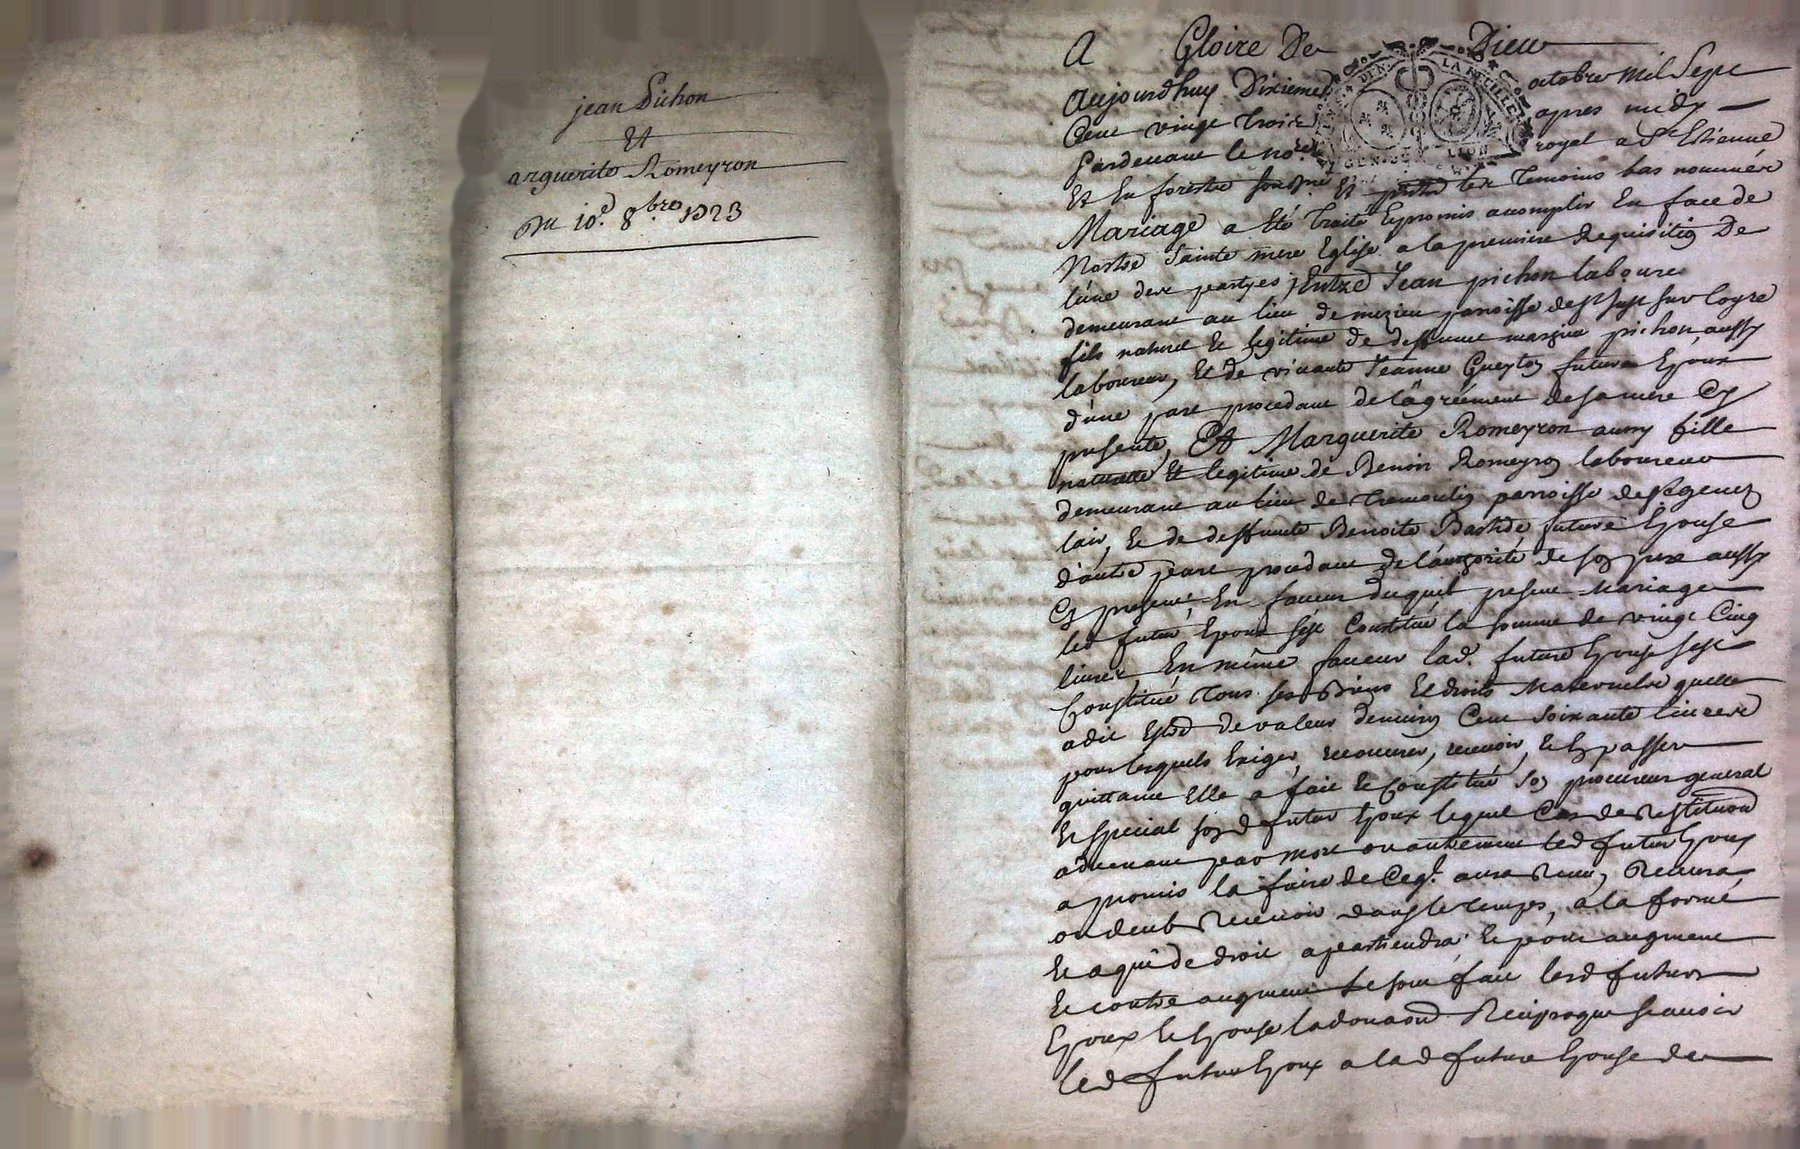 jean Pichon
Et
arguerite Romeyron
Du 10.e 8.bre 1723
A Gloire De Dieu
Aujourdhuy Dixieme octobre mil Sept
Cent vingt trois apres midy
Pardevant le no.re royal a St Estienne
Et En forestz soussigné Et présé les temoins bas nommés
Mariage a Eté traité Epromis acomplir En face de
Nostre Sainte mere Eglise a la premiere Requisition De
lúne des partyes, Entre Jean pichon laboureur
demeurant au lieu de mezieu parroisse de st just sur loyre
fils naturel Et legitime de deffunct pichon aussy
laboureur, Et de vivante Jeanne Gueyton futur Epoux
dúne part procedant de l'agréement de sa mere Cy
presente, Et Marguerite Romeyron aussy fille
naturelle Et legitime de Benoit Romeyron laboureur
demeurant au lieu de tremoulin parroisse de st genest
lair, Et de deffuncte Benoite Bastide future Epouse
d'autre part procedant de l'autorité de son pere aussy
Cy present, En faveur duquel present Mariage
led futur Epoux sest Constitué la somme de vingt Cinq
livres, En même faveur lad. future Epouse sest
Constitué tous ses Biens Et droits Maternels quelle
a dit Estre de valeur denviron Cent soixante livres
pour lesquels Exiger, recouvrer, recevoir, Et En passer
quittance Elle a fait Et Constitué son procureur general
Et special sond futur Epoux lequel Cas de restitution
advenant par mort ou autrement led futur Epoux
a promis la faire de Ceq.l aura Receu, Recevra
ou deub Recevoir dans le temps, a la forme
Et a quî de droit apartiendra, Et pour augment
Et contre augment se sont fait lesd futurs
Epoux Et Epouse la donaon Reciproque scavoir
led futur Epoux a lad future Epouse de